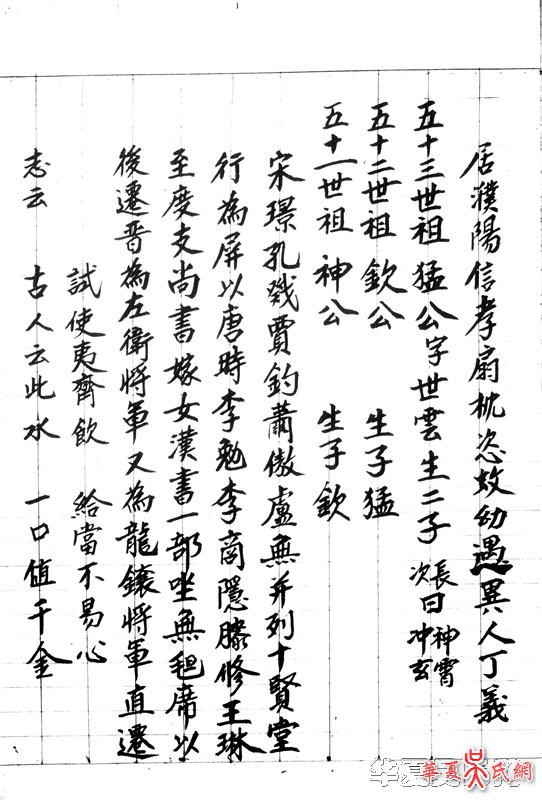 志云 古人云此水 一口值千金
試使夷齊飲 給當不易心
後遷晋為左衛將軍又為龍鑲將軍直遷
至度支尚書嫁女漢書一部坐無氈席以
行為屏以唐時李勉李商隱滕修王琳
宋璟孔戣賈釣蕭倣盧無并列十賢堂
五十一世祖神公 生子欽
五十二世祖欽公 生子猛
五十三世祖猛公字世雲生二子 長次曰神霄冲玄
居濮陽信孝扇枕恣蚊幼遇異人丁義
華夏吳氏網